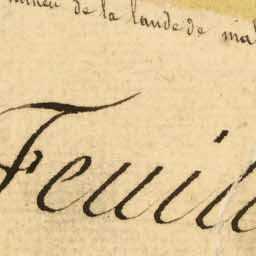 milieu de la lande de mal
Feuill